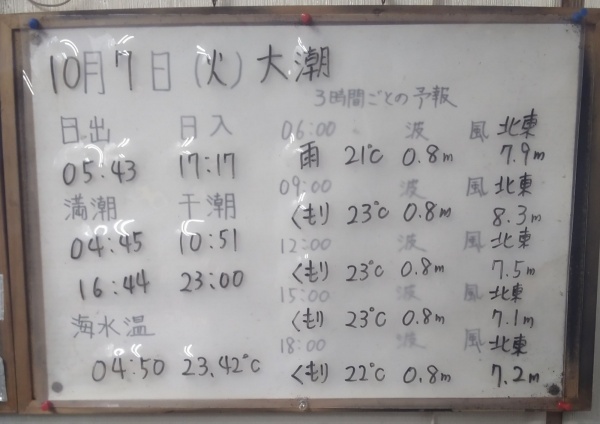 10月7日(火)大潮
3時間ごとの予報
日出 日入
05:43 17:17
満潮 干潮
04:45 10:51
16:44 23:00
海水温
04:50 23.42℃
06:00 波 風 北東
雨 21℃ 0.8m 7.9m
09:00 波 風 北東
くもり 23℃ 0.8m 8.3m
12:00 波 風 北東
くもり 23℃ 0.8m 7.5m
15:00 波 風 北東
くもり 23℃ 0.8m 7.1m
18:00 波 風 北東
くもり 22℃ 0.8m 7.2m